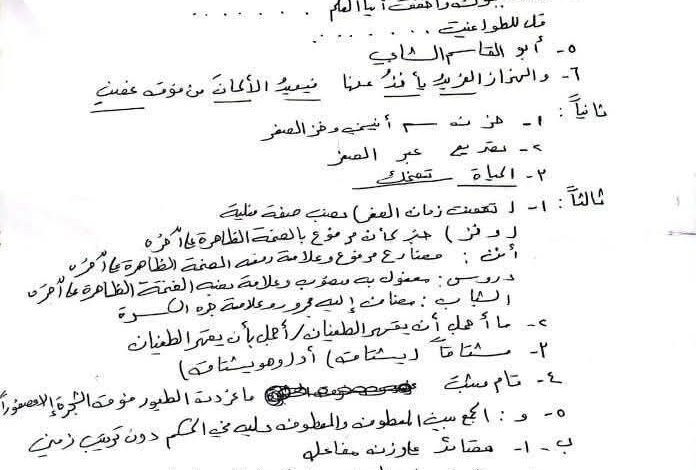 قل للطواغيت . . . . . . . .
٥- أبو القاسم الشابي
٦- والهزاز الغريد يأخذُ عنها فيعيدُ الألحانَ من فوقه غصنِ
ثانياً : ١- حزنه سم أنيني وخز الصغر
٢- تقريع عبر الصغر
٣- الحياة تضحك
ثالثاً : ١- ( تحت زمان الصغر )
( وخز ) خبر كان مرفوع بالضمة الظاهرة على آخره
أئن : مضارع مرفوع وعلامة رفعه الضمة الظاهرة على آخره
دروس : مفعول به منصوب وعلامة نصبه الفتحة الظاهرة على آخره
الشاب : مضاف إليه مجرور وعلامة جره الكسرة
٢- ما أجمل أن يقهر الطغيان / أجمل بأن يقهر الطغيان
٣- مشتاقاً ( يشتاقه ) أو ( وهو يشتاقه )
٤- قام ما غردت الطيور فوقه الشجرة إلا عصفوراً
٥- و : الجمع بين المعطوف والمعطوف عليه في الحكم دون ترتيب زمني
ب- ١- على وزن مفاعل